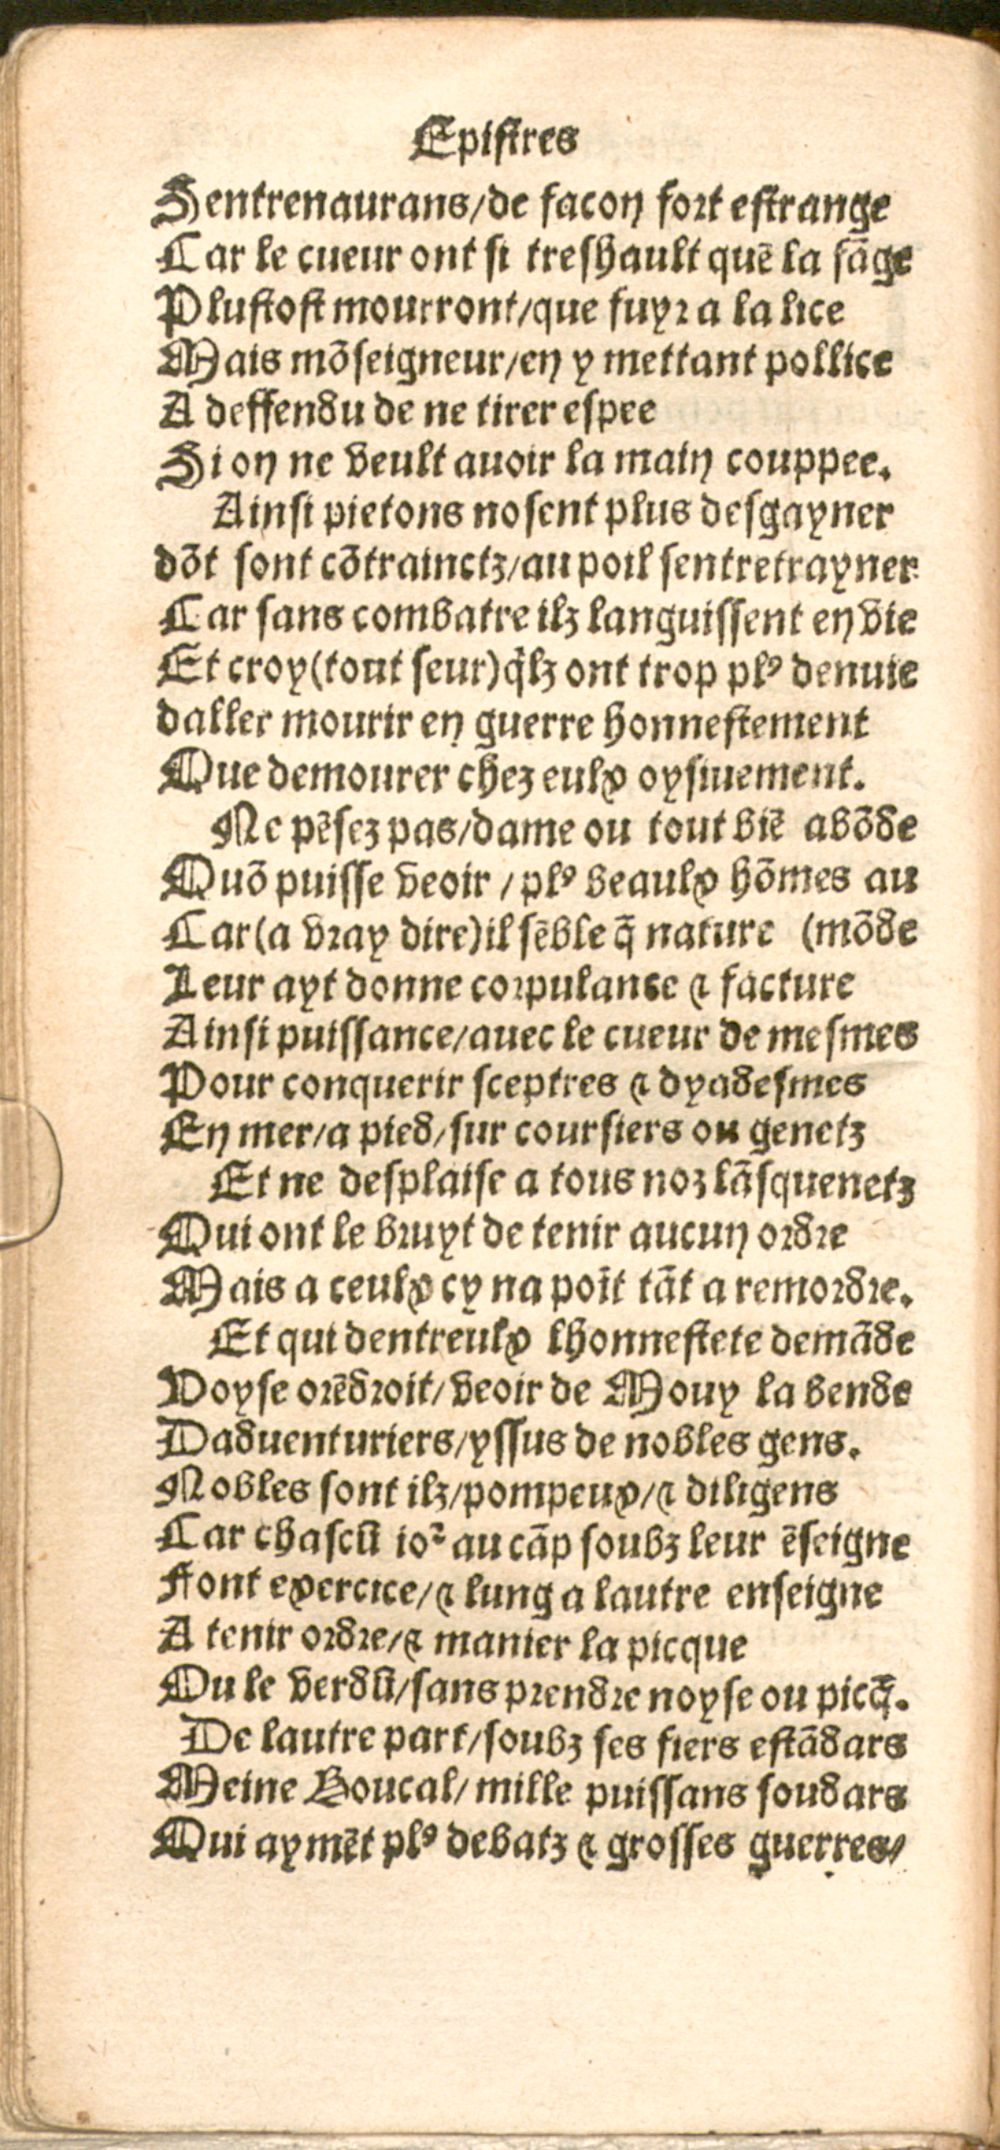 Epistres
Sentrenaurans/de facon fort estrange
Car le cueur ont si treshault quē la fāge
Plustost mourront/que fuyr a la lice
Mais mōseigneur/en y mettant pollice
A deffendu de ne tirer espee
Si on ne veult auoir la main couppee.
Ainsi pietons nosent plus desgayner
dōt sont cōtrainctz/au poil sentretrayner
Car sans combatre ilz languissent en vie
Et croy(tout seur)q̄lz ont trop plꝰ denuie
daller mourir en guerre honnestement
Que demourer chez eulx oysiuement.
Ne pēsez pas/dame ou tout biē abōde
Quō puisse veoir / plꝰ beaulx hōmes au
Car(a vray dire)il sēble q̄ nature (mōde
Leur ayt donne corpulance ⁊ facture
Ainsi puissance/auec le cueur de mesmes
Pour conquerir sceptres ⁊ dyadesmes
En mer/a pied/sur coursiers ou genetz
Et ne desplaise a tous noz lāsquenetz
Qui ont le bruyt de tenir aucun ordre
Mais a ceulx cy na poīt tāt a remordre.
Et qui dentreulx lhonnestete demāde
Voyse orēdroit/veoir de Mouy la bende
Daduenturiers/yssus de nobles gens.
Nobles sont ilz/pompeux/⁊ diligens
Car chascū ioꝰ au cāp soubz leur ēseigne
Font exercice/⁊ lung a lautre enseigne
A tenir ordre/⁊ manier la picque
Ou le verdū/sans prendre noyse ou picq̄.
De lautre part/soubz ses fiers estādars
Meine Boucal/mille puissans soudars
Qui aymēt plꝰ debatz ⁊ grosses guerres/